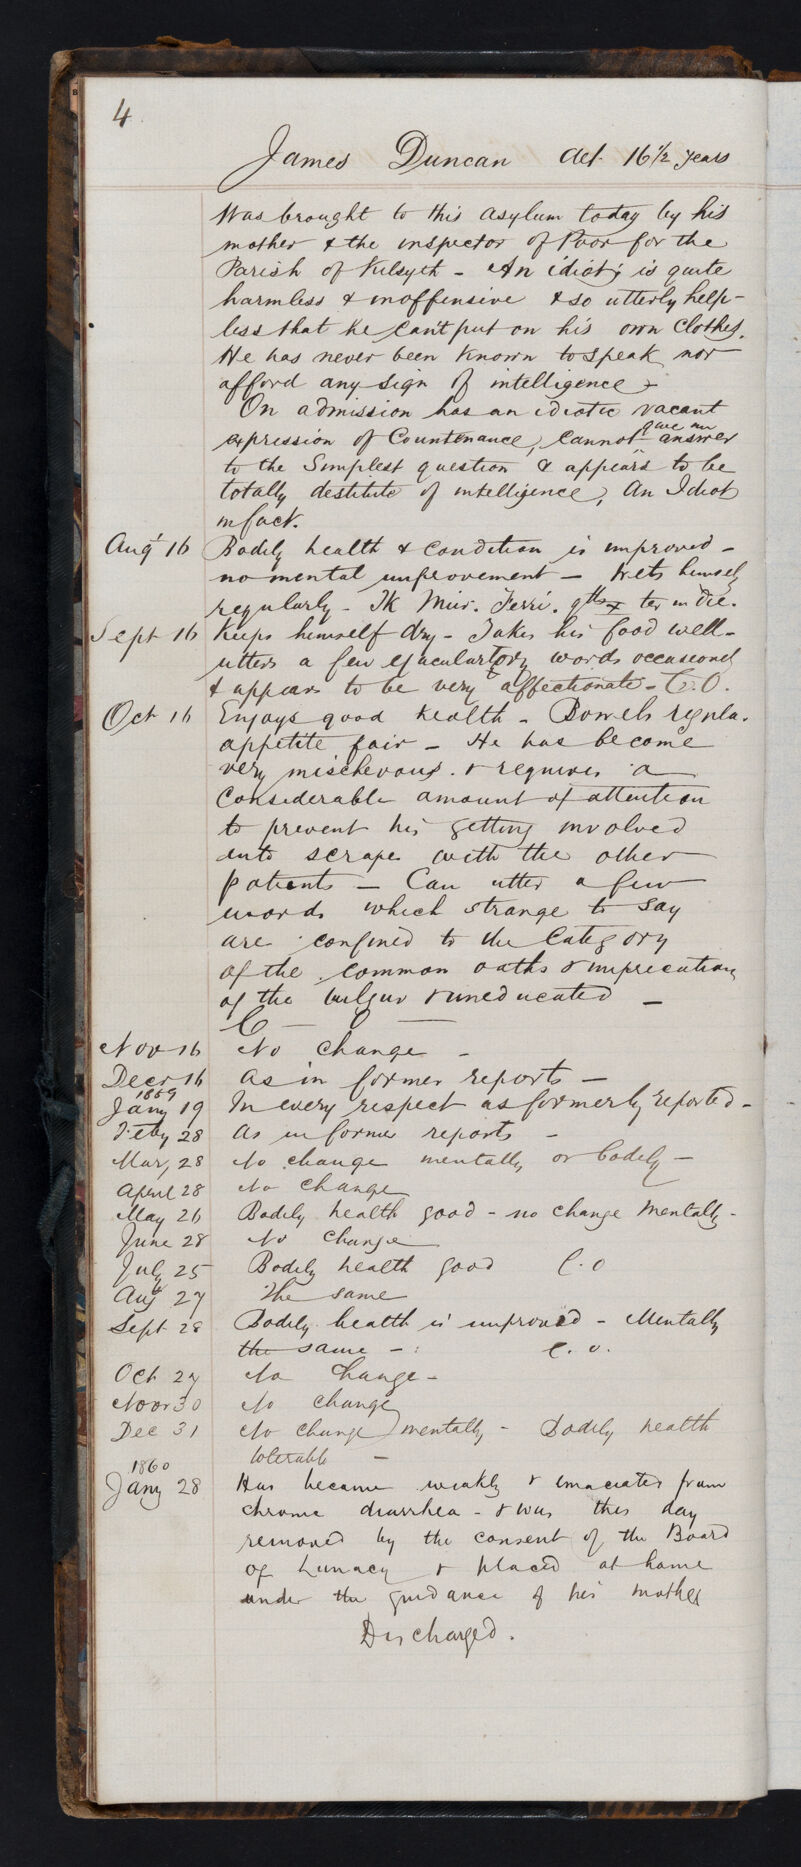 4
James Duncan Aet. 16 1/2 years
Was brought to this asylum today by his
mother & the inspector of Poor for the
Parish of Kilsyth - An idiot, is quite
harmless & inoffensive & so utterly help-
less that he can't put on his own clothes.
He has never been known to speak nor
afford any sign of intelligence -
On admission has an idiotic vacant
expression of Countenance, cannot give an answer
to the Simplest question & appears to be
totally destitute of intelligence, An Idiot
in fact.
Augt 16 Bodily health & condition is improved -
no mental improvement - Wets himself
regularly - Tr. Mur. Ferri. ter in die.
Sept 16 Keeps himself dry - Takes his food well -
utters a few ejaculatory words occasionally
& appears to be very affectionate - C.O.
Oct 16 Enjoys good health - Bowels regular.
appetite fair - He has become
very mischevous. & requires a
considerable amount of attention
to prevent his getting involved
into scrapes with the other
patients - Can utter a few
words which strange to say
are confined to the Category
of the common oaths & imprecations
of the vulgar & uneducated -
C - O -
Novr 16 No change -
Decr 16 As in former reports -
1859
Jany 19 In every respect as formerly reported -
Feby 28 As in former reports -
Mar, 28 No change mentally or bodily -
April 28 No change
May 26 Bodily health good - no change Mentally -
June 28 No change
July 25 Bodily health good C.O
Aug 27 The same
Sept 28 Bodily health is improved - Mentally
the same - C.O.
Oct 27 No change -
Novr 30 No change
Dec 31 No change mentally - Bodily health
tolerable -
1860
Jany 28 Has became weakly & emaciated from
chronic diarrhea - & was this day
removed by the consent of the Board
of Lunacy & placed at home
under the guidance of his mother
Discharged.